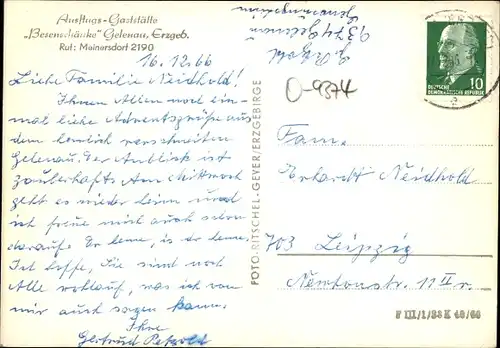 Ausflugs-Gaststätte
„Besenschänke“ Gelenau, Erzgeb.
Ruf: Meinersdorf 2190
16. 12. 66
Liebe Familie Neidhold!
Ihnen Allen noch ein-
mal liebe Adventsgrüße aus
dem herrlich verschneiten
Gelenau. Der Anblick ist
zauberhaft. Am Mittwoch
geht es wieder heim und
ich freue mich auch schon
darauf.
Ich hoffe, Sie sind noch
Alle wohlauf, was ich von
mir auch sagen kann.
Ihre
Gertrud Petzold
FOTO-RITSCHEL-GEYER/ERZGEBIRGE
G. Petzold
9374 Gelenau
O-9374
DEUTSCHE
DEMOKRATISCHE REPUBLIK
10
Fam.
Erhardt Neidhold
703 Leipzig
Newtonstr. 11 II r.
F III/1/38 K 48/66